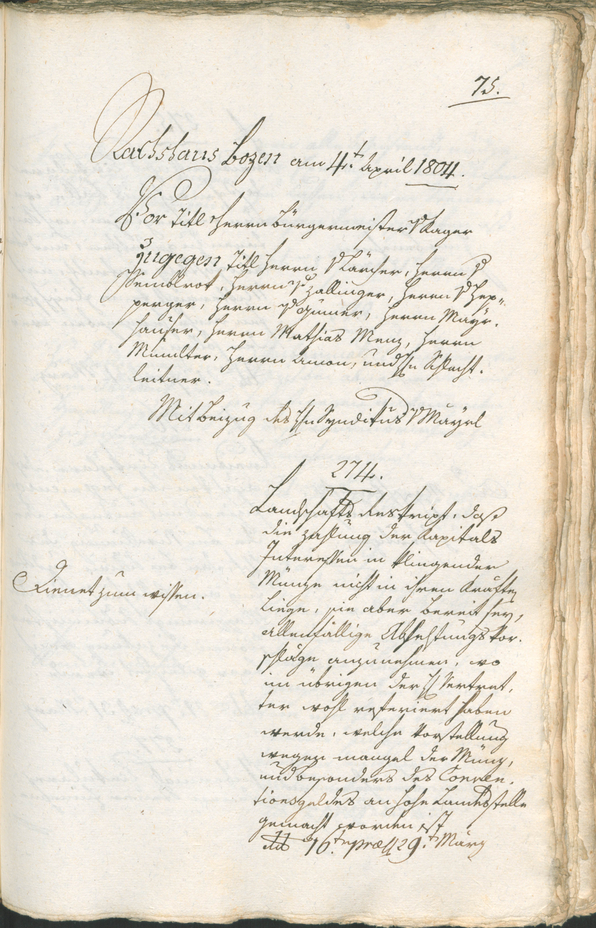 75.
Rathshaus Bozen am 4.t April 1804.
Vor Titl Herrn Bürgermeister v Kager
Zugegen Titl Herrn v Kärcher, Herrn v
Remblrot, Herrn v Zallinger, Herrn v Hep-
perger, Herrn v Gumer, Herrn Mayr-
hauser, Herrn Mathias Menz, Herrn
Mumelter, Herrn Amon, und Hn Schlecht-
leitner.
Mit Beizug des Hn Syndikus v Mayrl
274.
Landschafts Reskript, daß
die Zahlung der Kapitals
Interessen in klingender
Münze nicht in ihren Kräften
liege, sie aber bereit sey,
allenfällige Abhelfungsvor-
schläge anzunehmen, wo
im übrigen der H Vertret-
ter wohl referiert haben
werde, welche Vorstellung
wegen mangel der Münz,
und besonders des Conven-
tionsgeldes an hohe Landesstelle
gemacht worden ist
dd 16.t præs 29.t März
Dienet zum wissen.